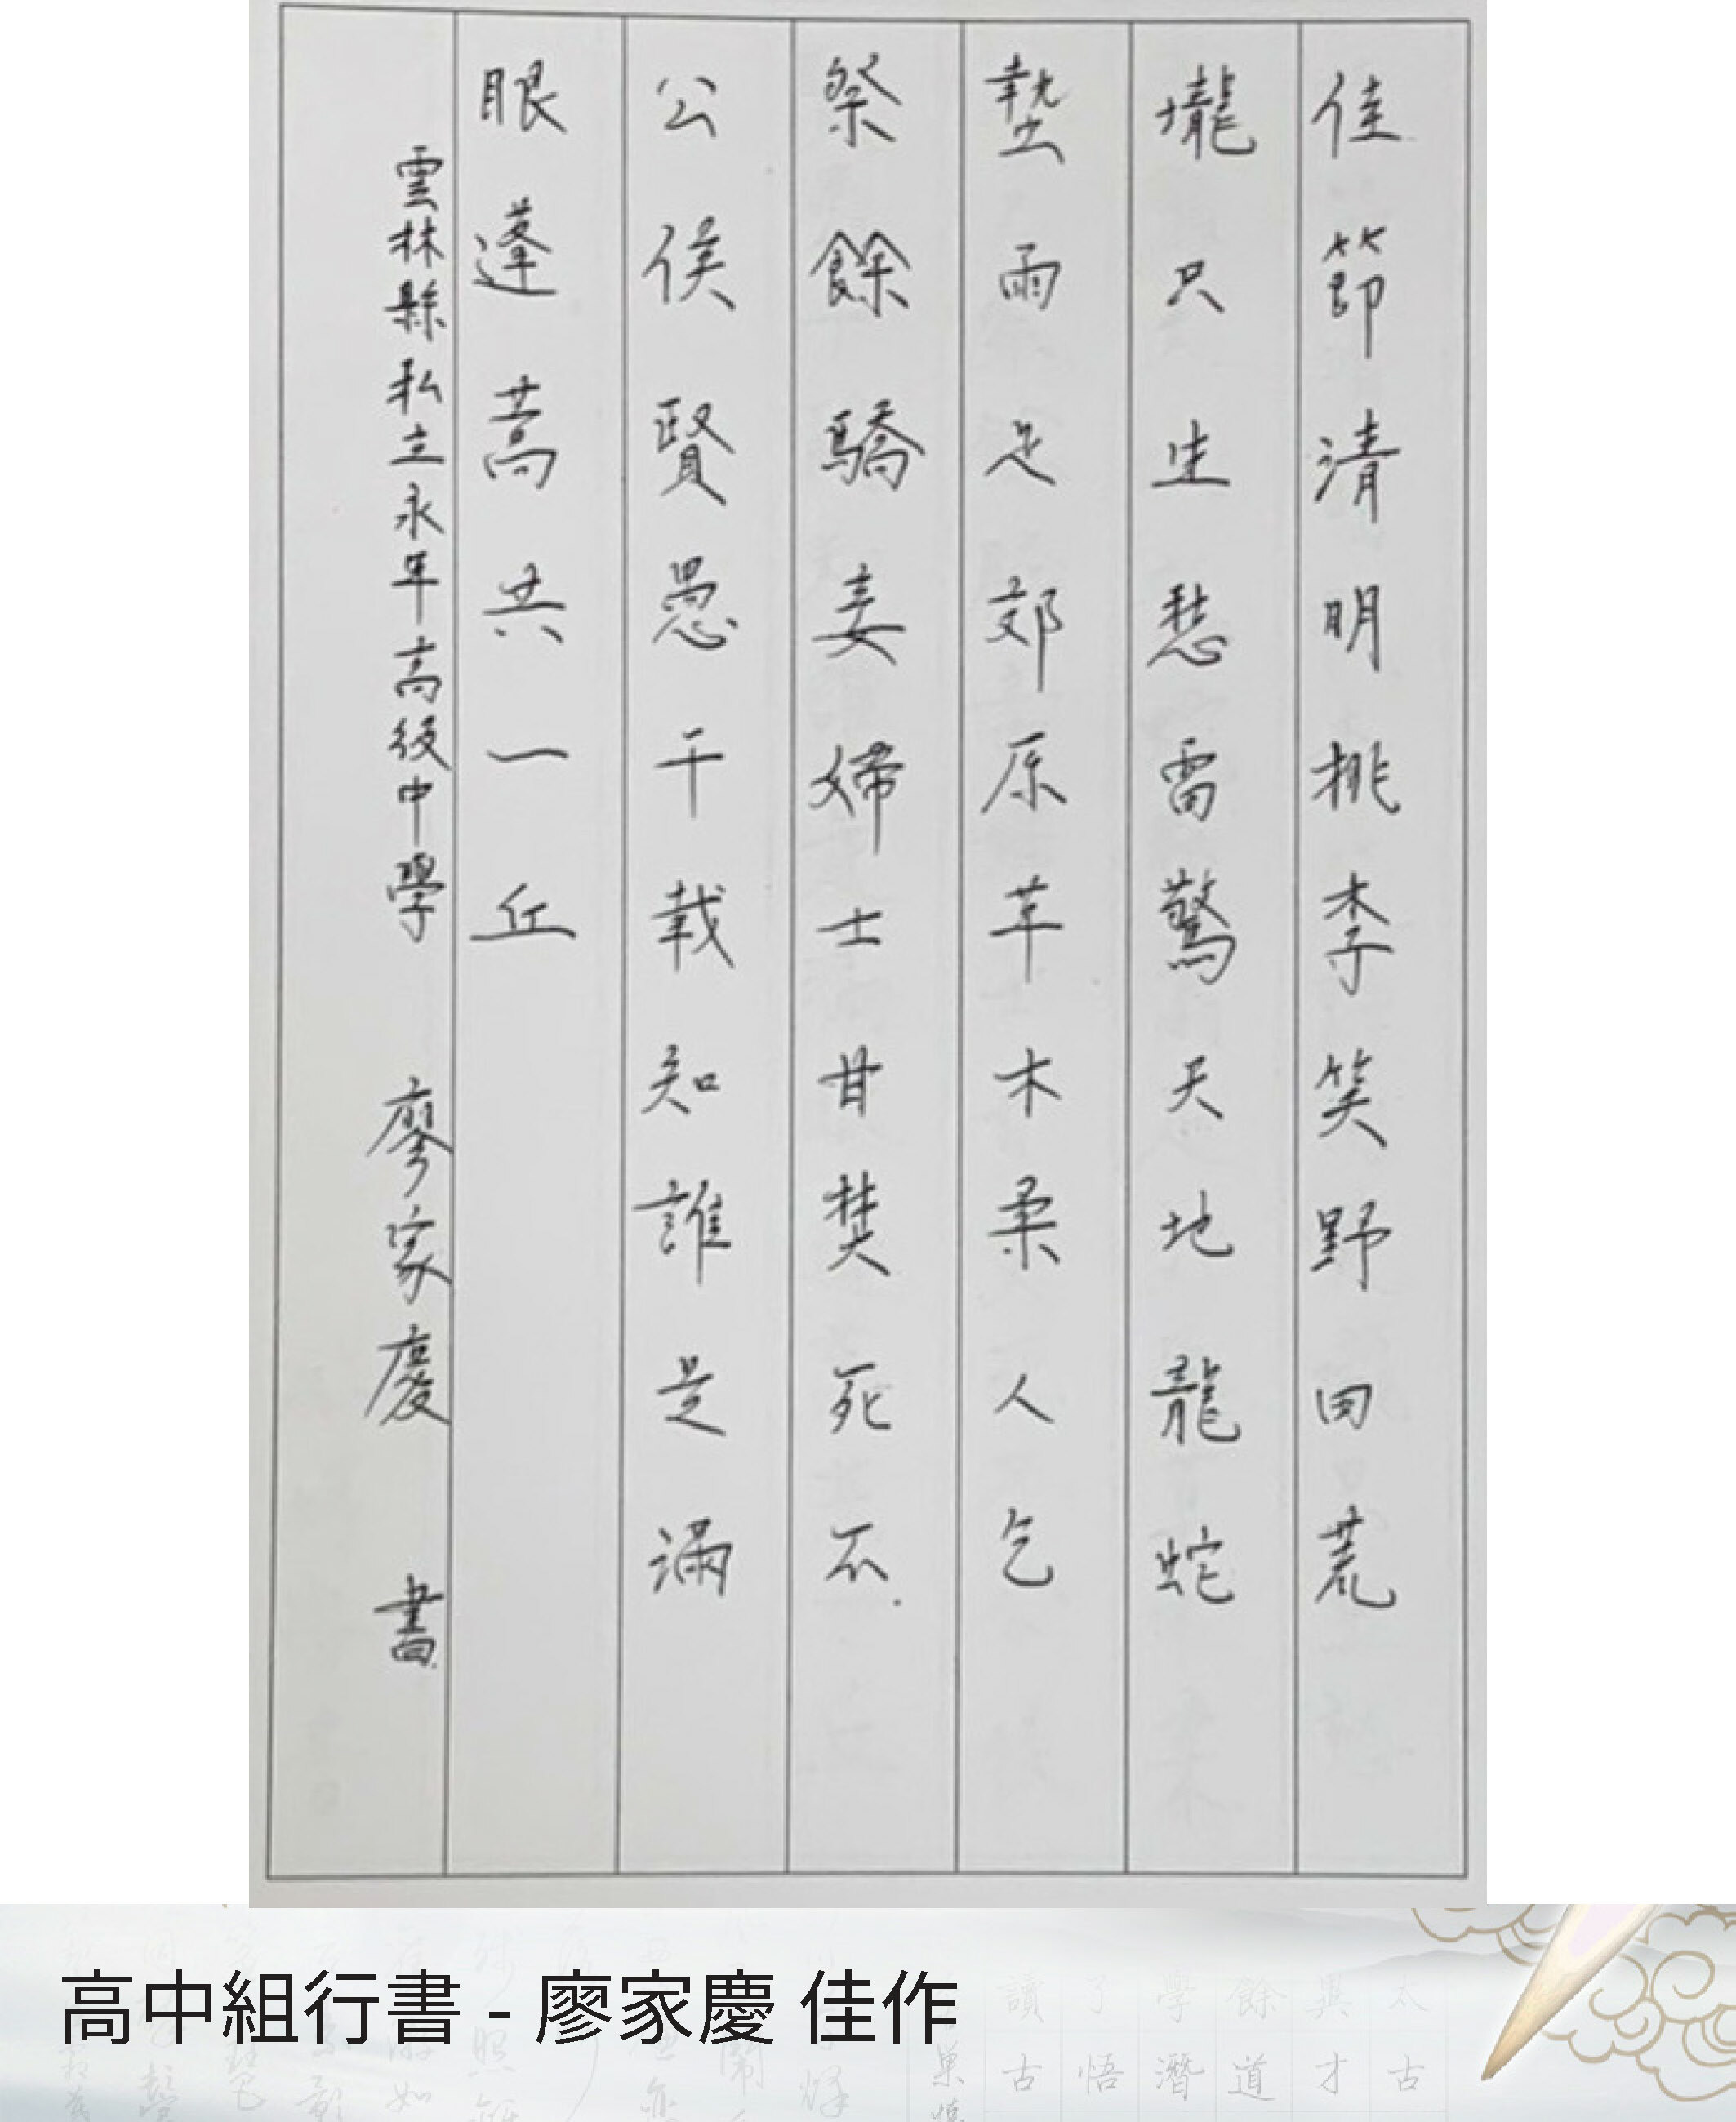 佳節清明桃李笑野田荒
壠只生愁雷驚天地龍蛇
蟄雨足郊原草木柔人乞
祭餘驕妾婦士甘焚死不
公侯賢愚千載知誰是滿
眼蓬蒿共一丘
雲林縣私立永年高級中學 廖家慶 書
高中組行書 - 廖家慶 佳作